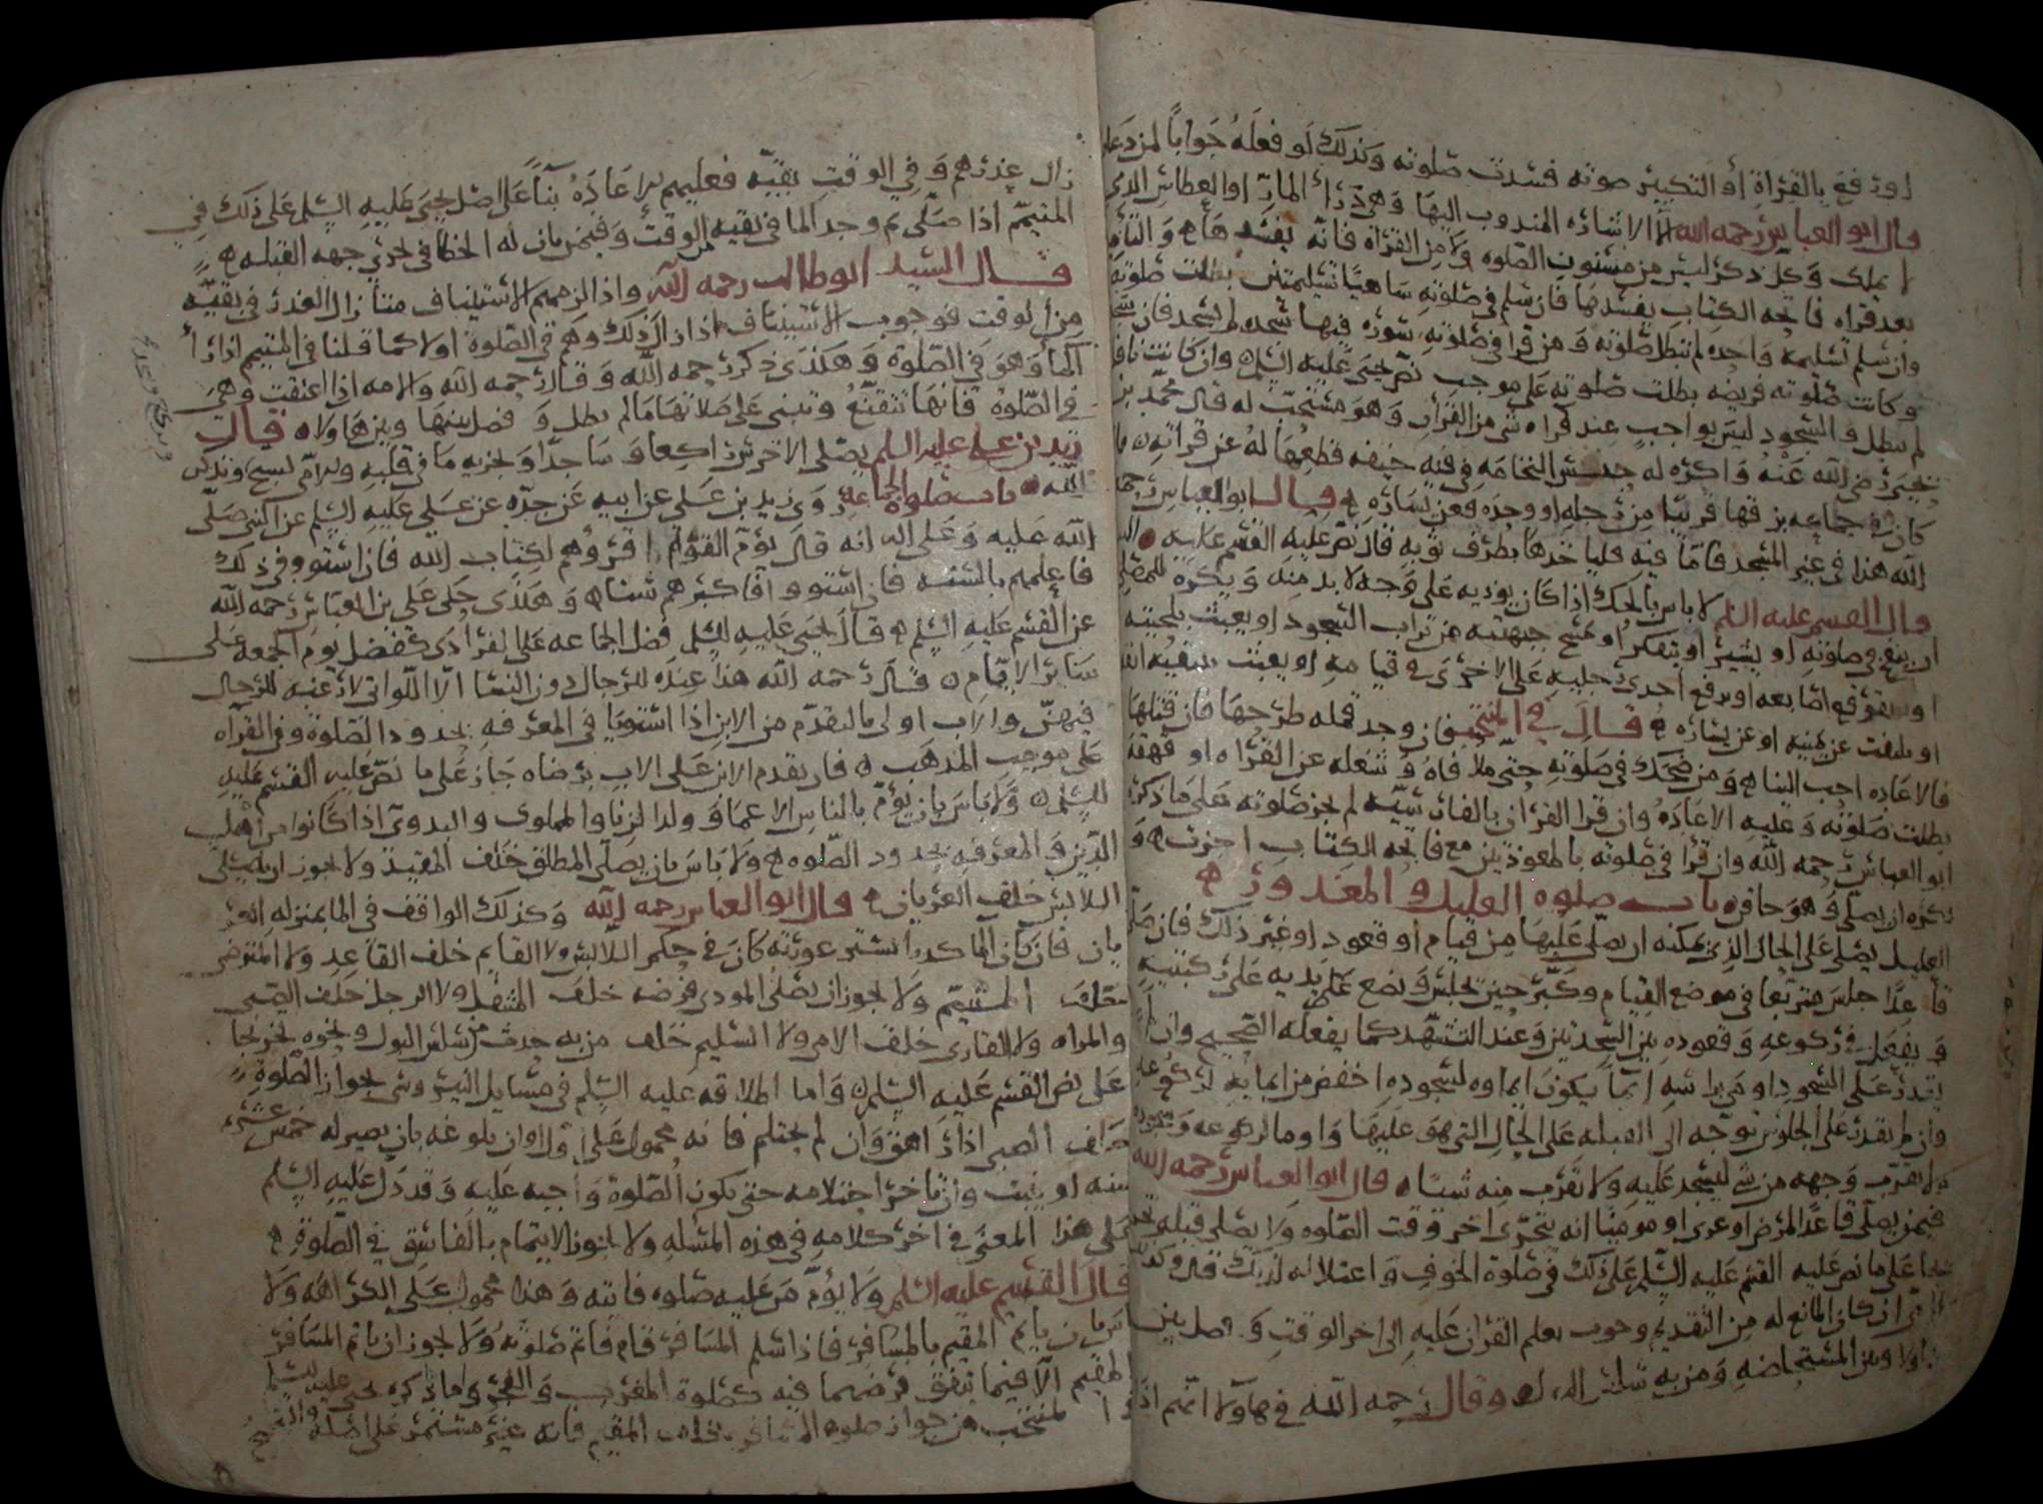 او رفع بالقراة أو التكبير صوته فسدت صلوته وكذلك لو فعله جوابا لمن دعا
قال ابو العباس رحمه الله الا الاشاره المندوب اليها وهي درا المار او العطاس الذي
لا يملك وكل ذكر ليس من مسنون الصلوه ولا من القراة فانه يفسدها ه
بعد قراه فاتحه الكتاب يفسدها فان سلم في صلوته ساهيا تسليمتين بطلت صلوته
وان سلم تسليمة واحده لم تبطل صلوته ومن قرا في صلوته سوره فيها سجده لم يسجد فان سجد
وكانت صلوته فريضه بطلت صلوته على موجب نص يحيى عليه السلم وان كانت نافلة
لم تبطل والسجود ليس بواجب عند قراه شي من القران وهو مستحب له قال محمد بن
يحيى رضي الله عنه واكره له حبس النخامه في فيه خيفه قطعها له عن قراته
كان في جماعه بزقها قريبا من رجله او وحده فعن يساره ه قال ابو العباس رحمه
الله هذا في غير المسجد فاما فيه فلياخذها بطرف ثوبه قال نص عليه القسم عليه
قال القسم عليه السلم لا باس بالحك اذا كان يوذيه على وجه لا بد منه ويكره للمصلي
ان ينفخ في صلوته او يشير او يتفكر او يمسح جبهته من تراب السجود او يعبث بلحيته
او يفرقع اصابعه او يرفع احدى رجليه على الاخرى في قيامه او يعبث
او يلتفت عن يمينه او عن يساره ه قال في المنتخب فان وجد قمله طرحها فان قتلها
فالاعاده احب الينا ه ومن ضحك في صلوته حتى ملا فاه وشغله عن القراه او قهقه
بطلت صلوته وعليه الاعاده وان قرا القران بالفارسيه لم يجز صلوته على ما ذكره
ابو العباس رحمه الله وان قرا في صلوته بالمعوذتين مع فاتحه الكتاب اجزت ه و
يكره ان يصلي وهو حاقن ه باب صلوه العليل والمعذور ه
العليل يصلي على الحال الذي يمكنه ان يصلي عليها من قيام او قعود او غير ذلك فان صلى
قاعدا جلس متربعا في موضع القيام وكبر حين يجلس وضع يديه على ركبتيه
ويفعل في ركوعه وقعوده بين السجدتين وعند التشهد كما يفعله الصحيح وان لم
يقدر على السجود اومى براسه ايما يكون ايماوه لسجوده اخفض من ايمايه لركوعه
وان لم يقدر على الجلوس توجه الى القبله على الحال التي هو عليها واوما لركوعه وسجوده
ولا يقرب وجهه من شي ليسجد عليه ولا يقرب منه شيا ه قال ابو العباس رحمه الله
فيمن يصلي قاعدا لمرض او عرى او موميا انه يتحرى اخر وقت الصلوه ولا يصلي قبله
على ما نص عليه القسم عليه السلم على ذلك في صلوة الخوف واعتلاله لذلك قال
ان كان المانع له من التقديم وجوب تعلم القران عليه الى اخر الوقت وفصل بين
هاولا وبين المستحاضه ومن به سلس البول وقال رحمه الله في هاولا انهم اذا
زال عذرهم وفي الوقت بقيه فعليهم الاعاده بنا على اصل يحيى عليه السلم على ذلك في
المتيمم اذا صلى ثم وجد الما في بقيه من الوقت وفيمن بان له الخطا في تحري جهه القبله ه
قال السيد ابو طالب رحمه الله واذا لزمهم الاستيناف متا زال العذر في بقية
من الوقت فوجوب الاستيناف اذا زال ذلك وهم في الصلوة اولا كما قلنا في المتيمم اذا را
الما وهو في الصلوة وهكذى ذكر رحمه الله وقال رحمه الله والامه اذا اعتقت وهي
في الصلوة فانها تتقنع وتبني على صلاتها ما لم يطل وفصل بينها وبين هاولا ه قال
زيد بن علي عليه السلم يصلي الاخرس راكعا وساجدا ويجزيه ما في قلبه والامي يسبح ويذكر
الله ه باب صلوة الجماعة روى زيد بن علي عن ابيه عن جده عن علي عليه السلم عن النبي صلى
الله عليه وعلى اله انه قال يؤم القوم اقرؤهم لكتاب الله فان استووا في ذلك
فاعلمهم بالسنه فان استووا فاكبرهم سنا ه وهكذى حكى علي بن العباس رحمه الله
عن القسم عليه السلم ه قال يحيى عليه السلم فضل الجماعه على الفرادى كفضل يوم الجمعه على
ساير الايام ه قال رحمه الله هذا عنده للرجال دون النسا الا اللواتي لا رغبه للرجال
فيهن والاب اولى بالتقدم من الابن اذا استويا في المعرفه بحدود الصلوة وفي القراه
على موجب المذهب ه فان تقدم الابن على الاب برضاه جاز على ما نص عليه القسم عليه
السلم ه ولا باس بان يؤم بالناس الاعما وولد الزنا والمملوك والبدوي اذا كانوا من اهل
الدين والمعرفه بحدود الصلوه ه ولا باس بان يصلي المطلق خلف المقيد ولا يجوز ان يصلي
اللابس خلف العريان ه قال ابو العباس رحمه الله وكذلك الواقف في الما بمنزله العر
يان فان كان الما كدرا تستر عورته كان في حكم اللابس ولا القايم خلف القاعد ولا المتوضي
خلف المتيمم ولا يجوز ان يصلي المودي فرضه خلف المتنفل ولا الرجل خلف الصبي
والمراه ولا القاري خلف الامي ولا السليم خلف من به حدث من سلس البول ونحوه
على نص القسم عليه السلم ه واما اطلاقه عليه السلم في مسايل النيروسي بجواز الصلوة
خلف الصبي اذا راهق وان لم يحتلم فانه محمول على اول اوان بلوغه بان يصير له خمس عشره
سنه او ينبت وان تاخر احتلامه حتى يكون الصلوة واجبه عليه وقد دل عليه السلم
على هذا المعنى في اخر كلامه في هذه المسله ولا يجوز الايتمام بالفاسق في الصلوة ه
قال القسم عليه السلم ولا يؤم من عليه صلوه فايته وهذا محمول على الكراهه ولا
باس بان ياتم المقيم بالمسافر فاذا سلم المسافر قام فاتم صلوته ولا يجوز ان ياتم المسافر
بالمقيم الا فيما يتفق فرضهما فيه كصلوة المغرب والفجر واما ذكره يحيى عليه السلم
في المنتخب من جواز صلوه المسافر خلف المقيم فانه غير مستمر على اصله